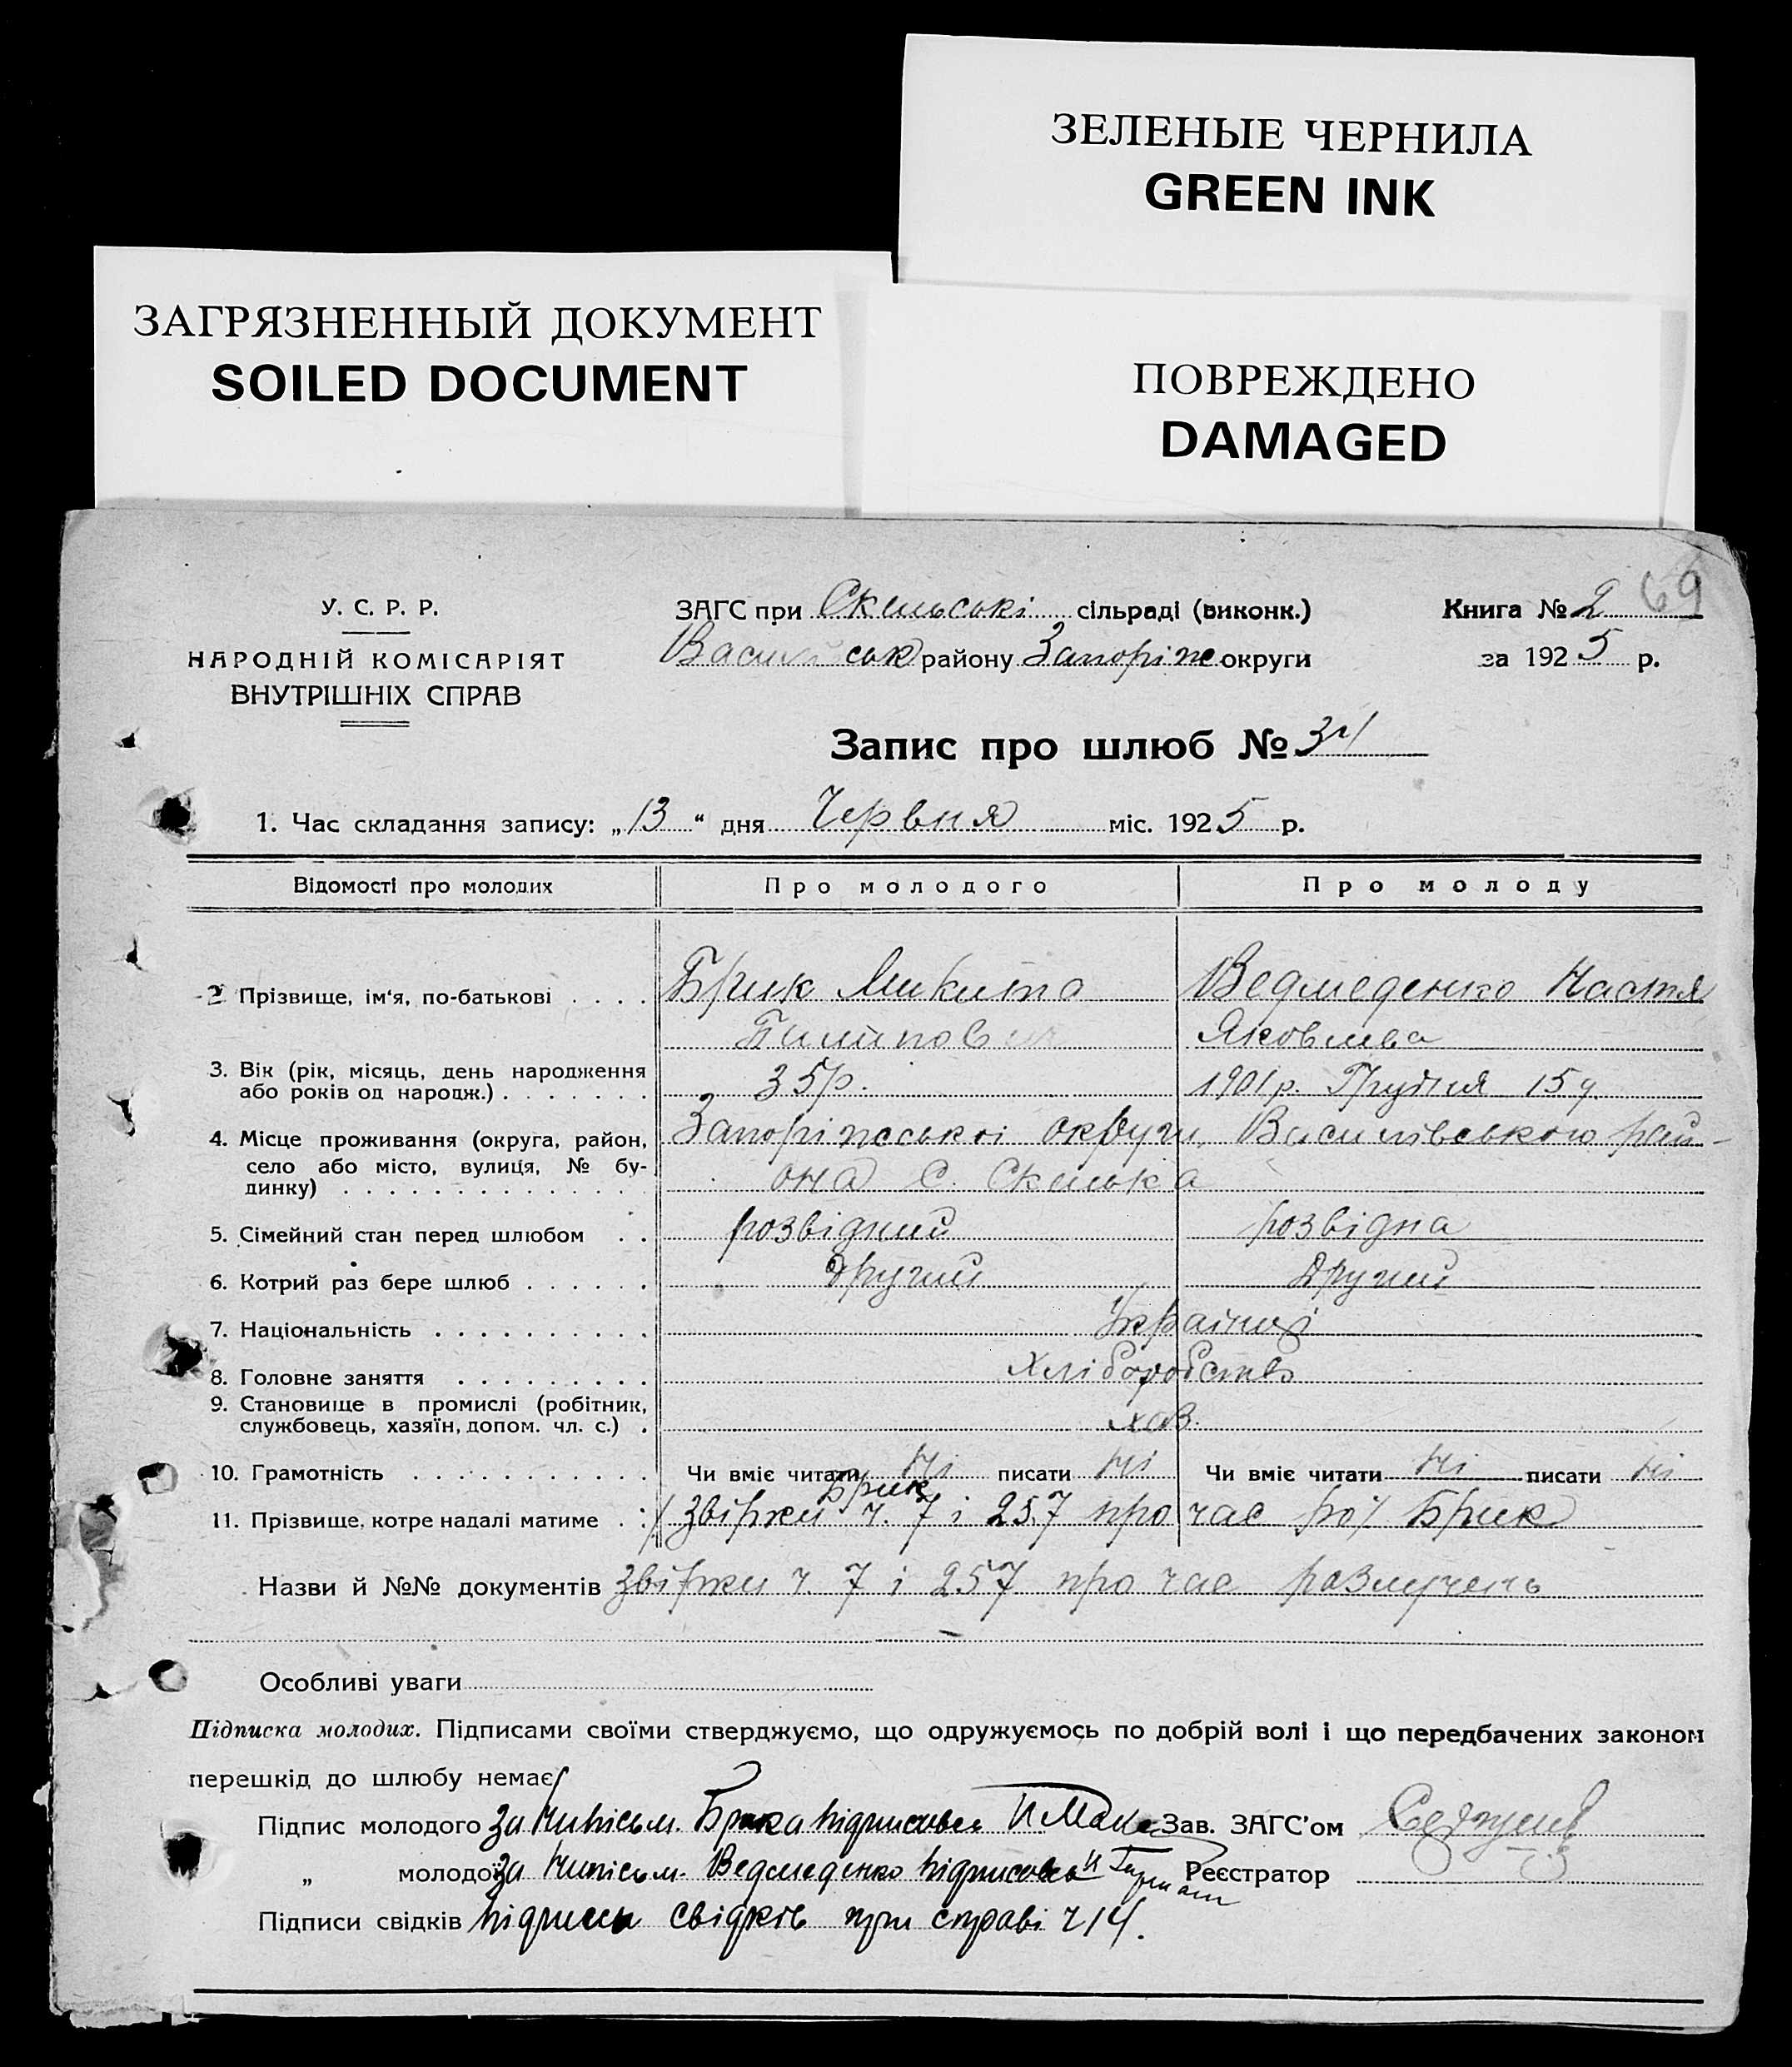 ЗЕЛЕНЫЕ ЧЕРНИЛА
GREEN INK
ЗАГРЯЗНЕННЫЙ ДОКУМЕНТ
SOILED DOCUMENT
ПОВРЕЖДЕНО
DAMAGED
69
У. С. Р. Р.
НАРОДНІЙ КОМІСАРІЯТ
ВНУТРІШНІХ СПРАВ
ЗАГС при Скельські сільраді (виконк.)
Васильськ району Запоріж округи
Книга № 2
за 1925 р.
Запис про шлюб № 34
1. Час складання запису: „13“ дня Червня міс. 1925 р.
Відомості про молодих Про молодого Про молоду
2 Прізвище, ім'я, по-батькові . . . . Брик Микита Ведмеденко Настя
Пилипович Яковлева
3. Вік (рік, місяць, день народження
або років од народж.) . . . . . . . 35р. 1901р. Грудня 15д.
4. Місце проживання (округа, район, Запоріжські округи, Василівського рай-
село або місто, вулиця, № бу-
динку) . . . . . . . . . . . . . она С. Скелька
5. Сімейний стан перед шлюбом . . розвідний розвідна
6. Котрий раз бере шлюб . . . . . . другий другий
7. Національність . . . . . . . . . . Українці
8. Головне заняття . . . . . . . . . Хліборобство
9. Становище в промислі (робітник,
службовець, хазяїн, допом. чл. с.) . хаз.
10. Грамотність . . . . . . . . . . . Чи вміє читати ні писати ні Чи вміє читати ні писати ні
Брик
11. Прізвище, котре надалі матиме . : / звірки ч. 7 і 257 про час ро/ Брик
Назви й №№ документів звірки ч 7 і 257 про час розлучень
Особливі уваги
Підписка молодих. Підписами своїми стверджуємо, що одружуємось по добрій волі і що передбачених законом
перешкід до шлюбу немає
Підпис молодого за Нипісьм. Брика підписався Зав. ЗАГС'ом
„ молодої за Нипісьм. Ведмеденко підписався Реєстратор
Підписи свідків підписи свідків при справі ч14.